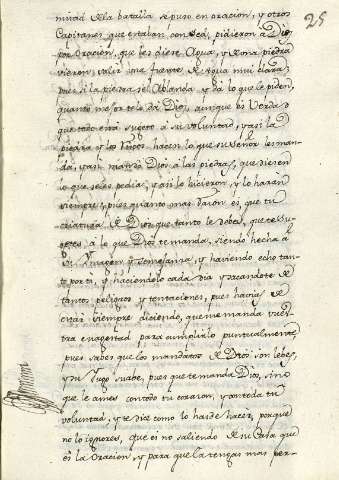 25
mitad de la batalla se puso en oracion, y otros
Capitanes, que estaban con sed, pidieron à Dios
por oracion, que les diese Agua, y de una piedra
vieron, salir una fuente de Agua mui clara,
pues si la piedra se Ablanda, y da lo que le piden,
quanto mejor te lo dà Dios, aunque es Verdad
que todo està sugeto à su voluntad, y asi la
piedra y los dones hacen lo que su Señor les man
da, y asi mandò Dios à las piedras, que diesen
lo que se les pedia, y asi lo hicieron, y lo haràn
siempre, pues quanto mas raçon es, que tu
criatura de Dios que tanto le debes, que te su
getes à lo que Dios te manda, siendo hecha à
su Imagen y semejansa, y haviendo echo tan
to por ti, y haciendolo cada dia y sacandote de
tantos peligros y tentaciones, pues havias de
estar siempre diciendo, que me manda vues
tra magestad para cumplirlo puntualmente,
pues sabes que los mandatos de Dios son lebes,
y su Yugo suabe, pues que te manda Dios, sino
que le ames con todo tu corazon, y con toda tu
voluntad, y te dice como lo has de hacer, porque
no lo ignores, que es no saliendo de su Casa que
es la oracion, y para que la tengas mas per-